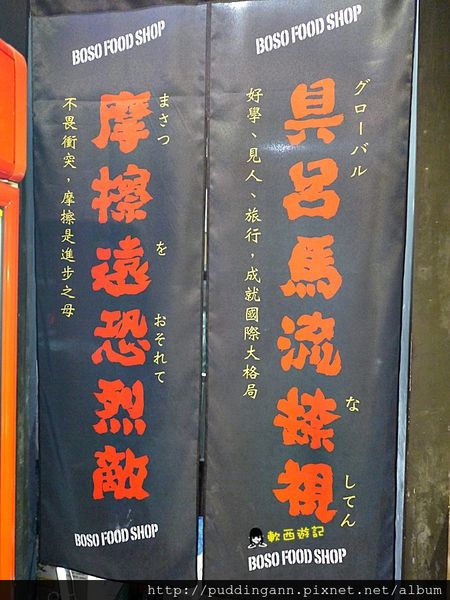 BOSO FOOD SHOP
グローバル な してん
具呂馬流捺視
好學、見人、旅行，成就國際大格局
BOSO FOOD SHOP
BOSO FOOD SHOP
まさつ を おそれて
摩擦遠恐烈敵
不畏衝突，摩擦是進步之母
BOSO FOOD SHOP
軟西遊記
http://puddingann.pixnet.net/album